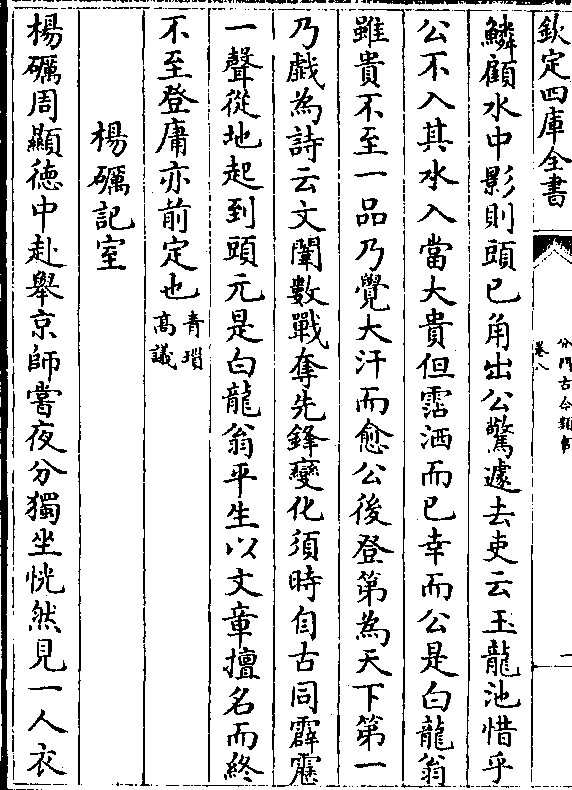 欽定四庫全書
分門古今類事
卷八
一
鱗顧水中影則頭已角出公驚遽去吏云玉龍池惜乎
公不入其水入當大貴但霑洒而已幸而公是白龍翁
雖貴不至一品乃覺大汗而愈公後登第為天下第一
乃戲為詩云文闈數戰奪先鋒變化須時自古同霹靂
一聲從地起到頭元是白龍翁平生以文章擅名而終
不至登庸亦前定也青瑣
高議
楊礪記室
楊礪周顯德中赴舉京師嘗夜分獨坐恍然見一人衣